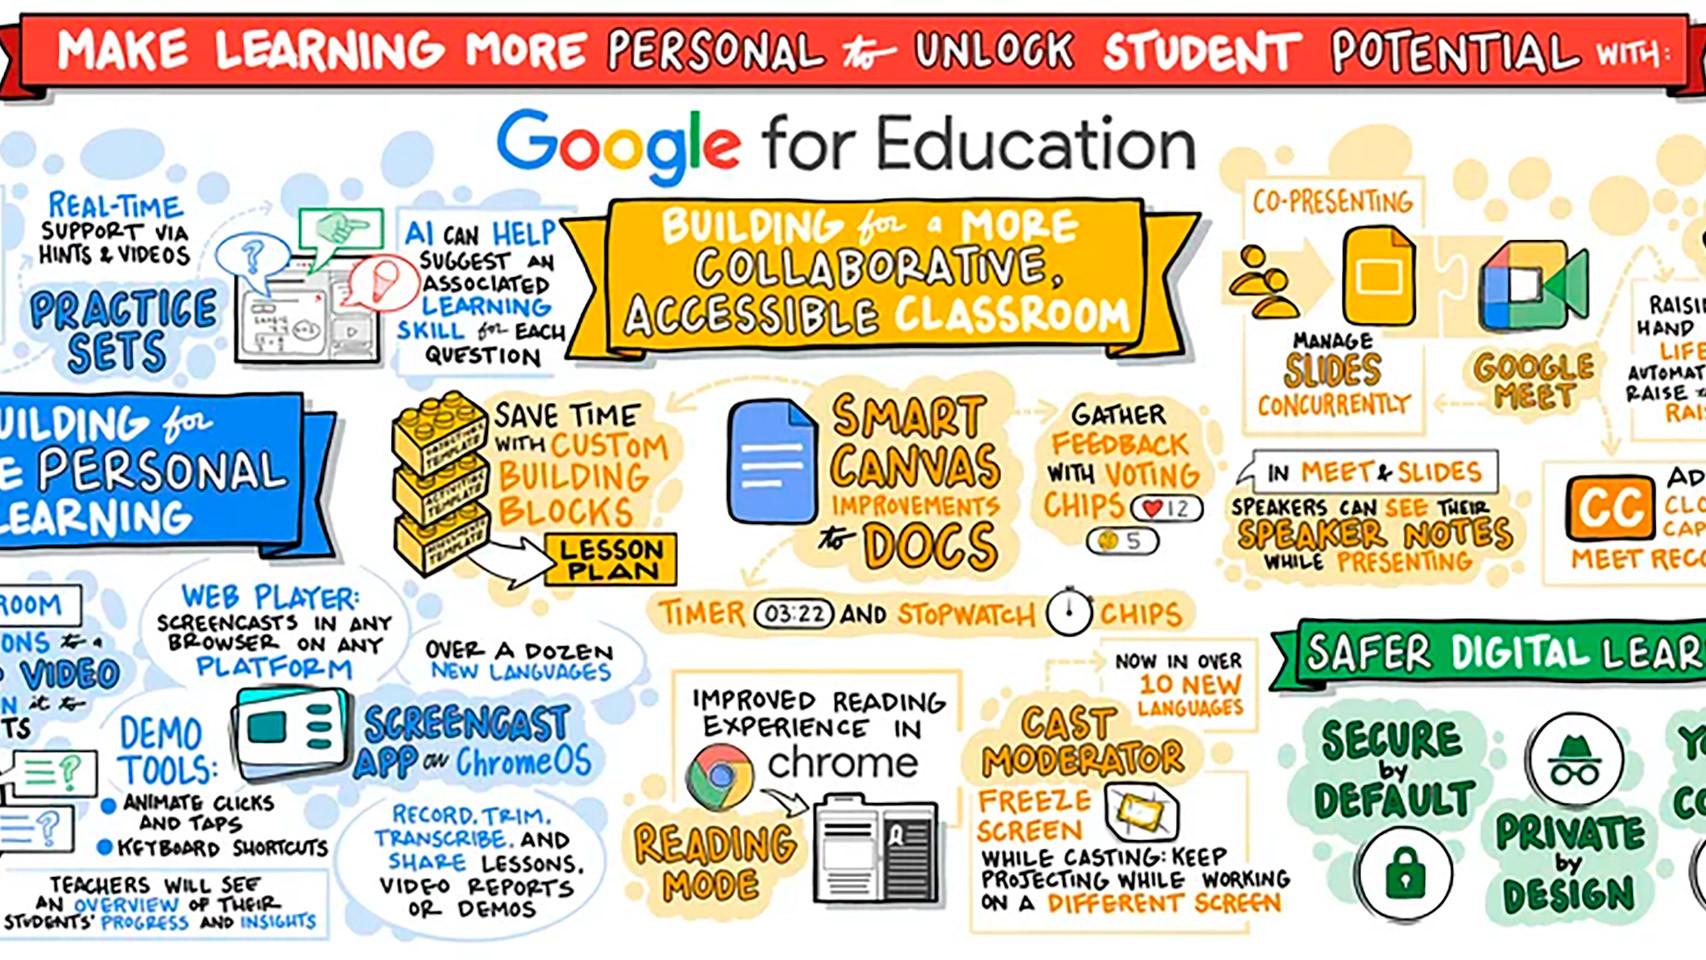 MAKE LEARNING MORE PERSONAL to UNLOCK STUDENT POTENTIAL WITH:
Google for Education
REAL-TIME
SUPPORT VIA
HINTS & VIDEOS
PRACTICE
SETS
?
AI CAN HELP
SUGGEST AN
ASSOCIATED
LEARNING
SKILL for EACH
QUESTION
BUILDING for a MORE
COLLABORATIVE,
ACCESSIBLE CLASSROOM
CO-PRESENTING
MANAGE
SLIDES
CONCURRENTLY
GOOGLE
MEET
HAND
RAISE
UILDING for
E PERSONAL
LEARNING
TEMPLATE
TEMPLATE
TEMPLATE
SAVE TIME
WITH CUSTOM
BUILDING
BLOCKS
LESSON
PLAN
SMART
CANVAS
IMPROVEMENTS
to DOCS
GATHER
FEEDBACK
WITH VOTING
CHIPS 12
5
TIMER 03:22 AND STOPWATCH CHIPS
IN MEET & SLIDES
SPEAKERS CAN SEE THEIR
SPEAKER NOTES
WHILE PRESENTING
CC
MEET REC
ROOM
ONS to a
VIDEO
N it to
TS
?
?
WEB PLAYER:
SCREENCASTS IN ANY
BROWSER ON ANY
PLATFORM
OVER A DOZEN
NEW LANGUAGES
DEMO
TOOLS:
ANIMATE CLICKS
AND TAPS
KEYBOARD SHORTCUTS
SCREENCAST
APP on ChromeOS
RECORD, TRIM,
TRANSCRIBE, AND
SHARE LESSONS,
VIDEO REPORTS
OR DEMOS
TEACHERS WILL SEE
AN OVERVIEW OF THEIR
STUDENTS' PROGRESS AND INSIGHTS
IMPROVED READING
EXPERIENCE IN
chrome
READING
MODE
NOW IN OVER
10 NEW
LANGUAGES
CAST
MODERATOR
FREEZE
SCREEN
WHILE CASTING: KEEP
PROJECTING WHILE WORKING
ON A DIFFERENT SCREEN
SAFER DIGITAL LEAR
SECURE
by
DEFAULT
PRIVATE
by
DESIGN